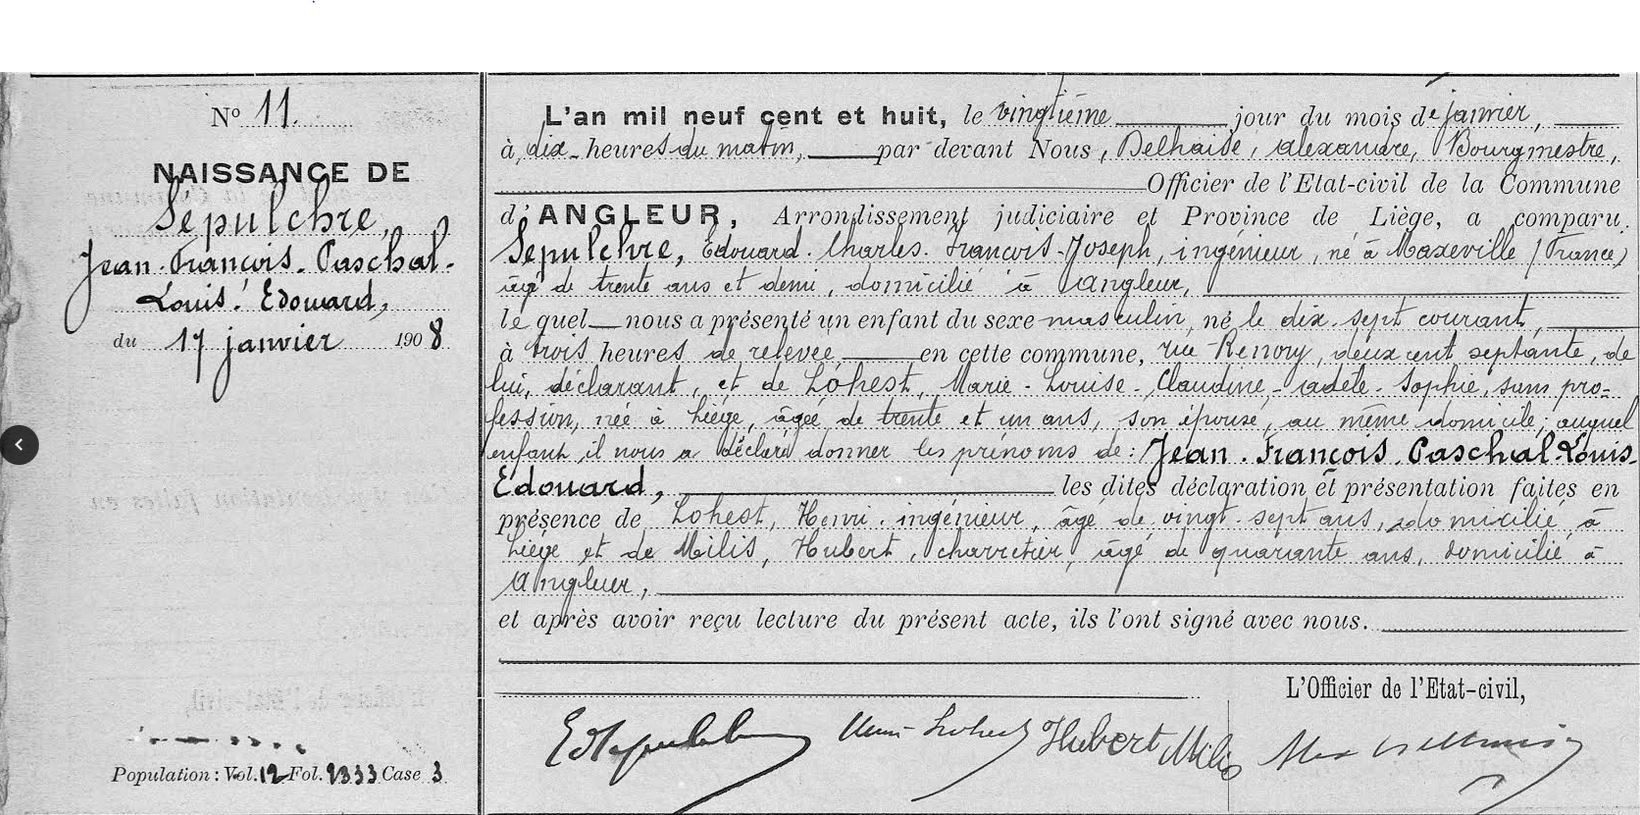 N° 11.
NAISSANCE DE
Sépulchre,
Jean-François-Paschal-
Louis-Edouard,
du 17 janvier 1908
Population : Vol. 12 Fol. 2333 Case 3
L'an mil neuf cent et huit, le vingtième jour du mois de janvier,
à dix heures du matin, par devant Nous, Delhaise, Alexandre, Bourgmestre,
Officier de l'Etat-civil de la Commune
d'ANGLEUR, Arrondissement judiciaire et Province de Liège, a comparu
Sépulchre, Edouard-Charles-François-Joseph, ingénieur, né à Maxeville (France)
âgé de trente ans et demi, domicilié à Angleur,
lequel nous a présenté un enfant du sexe masculin, né le dix-sept courant,
à trois heures de relevée en cette commune, rue Renory, deux cent septante, de
lui, déclarant, et de Lohest, Marie-Louise-Claudine-Adèle-Sophie, sans pro-
fession, née à Liège, âgée de trente et un ans, son épouse, au même domicile; auquel
enfant il nous a déclaré donner les prénoms de : Jean-François-Paschal-Louis-
Edouard, les dites déclaration et présentation faites en
présence de Lohest, Henri, ingénieur, âgé de vingt-sept ans, domicilié à
Liège et de Milis, Hubert, charretier, âgé de quarante ans, domicilié à
Angleur,
et après avoir reçu lecture du présent acte, ils l'ont signé avec nous.
L'Officier de l'Etat-civil,
Ed Sépulchre Henri Lohest Hubert Milis